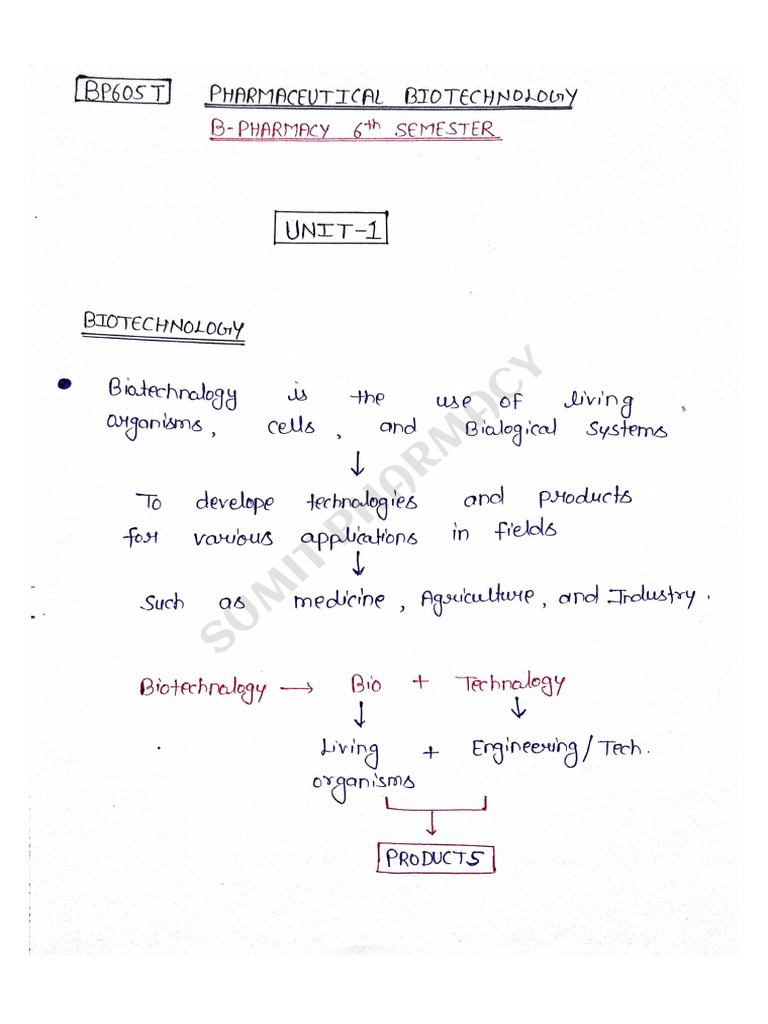 BP605T PHARMACEUTICAL BIOTECHNOLOGY
B-PHARMACY 6th SEMESTER
UNIT-1
BIOTECHNOLOGY
• Biotechnology is the use of living
organisms, cells, and Biological Systems
↓
To develope technologies and products
for various applications in fields
↓
Such as medicine, Agriculture, and Industry.
Biotechnology → Bio + Technology
↓ ↓
Living + Engineering/Tech.
organisms
↓
PRODUCTS
SUMIT PHARMACY